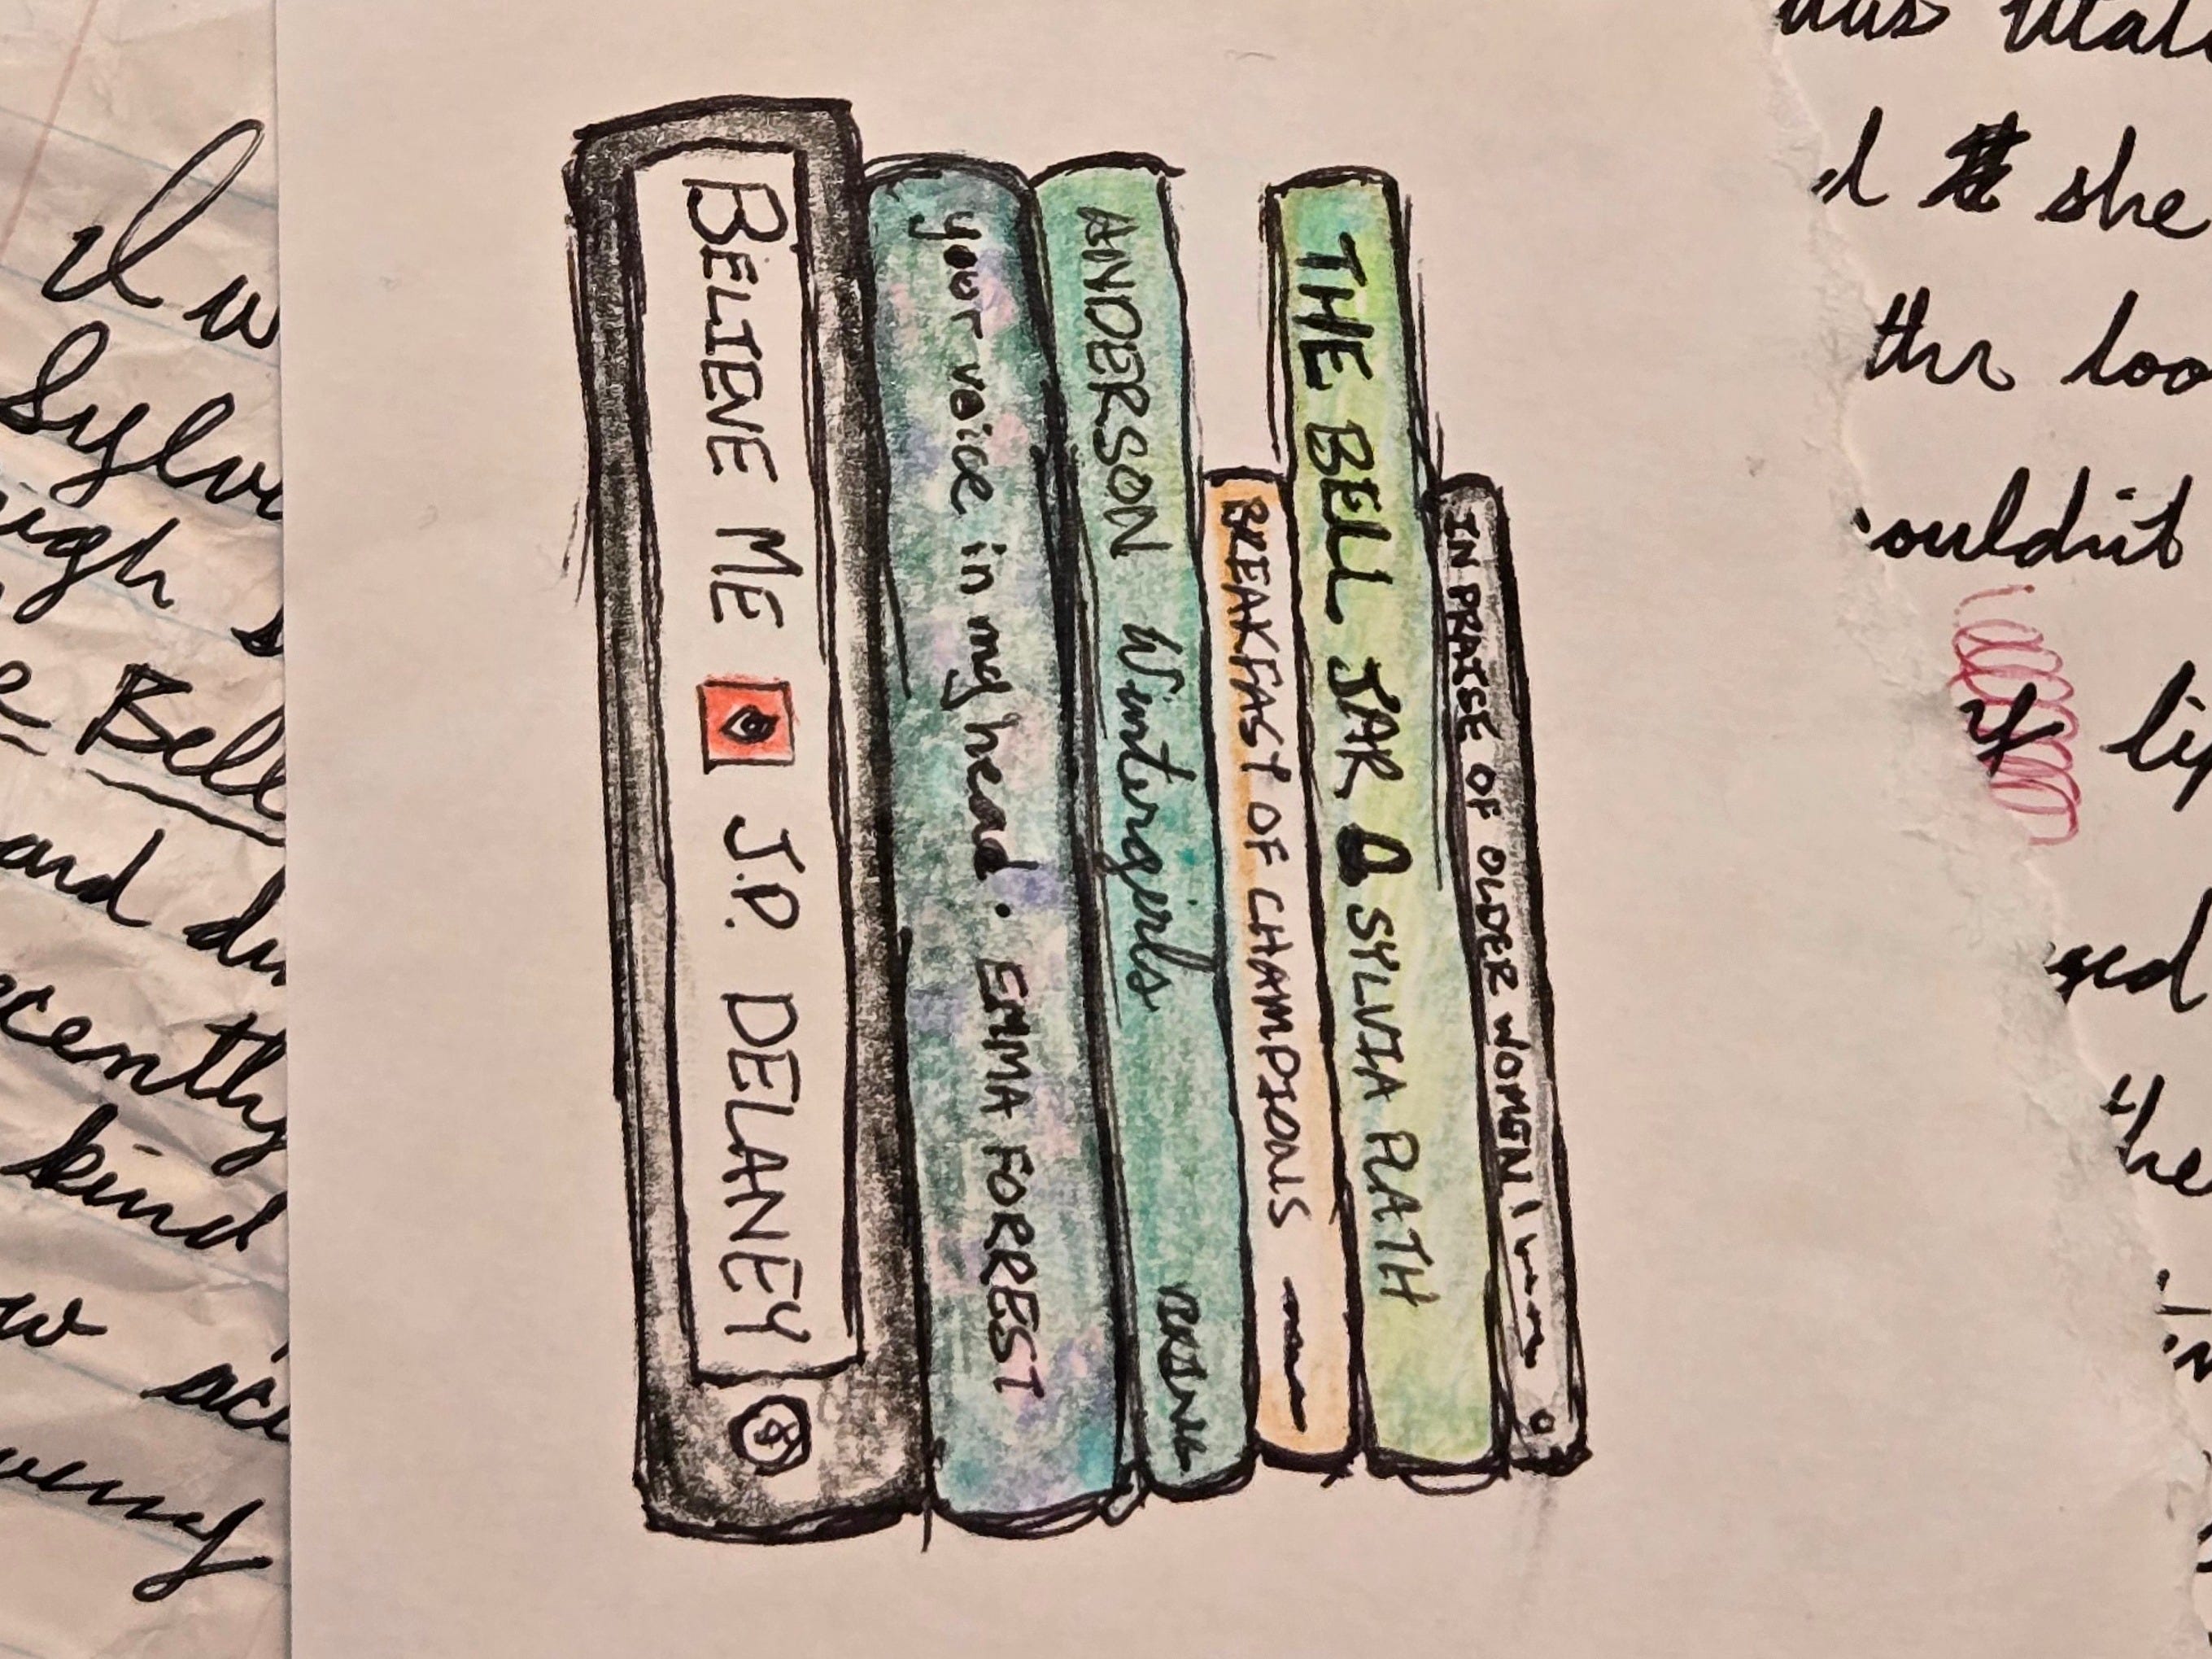 I w
Sylv
igh s
e Bell
and du
cently
kind
w aci
BELIEVE ME J.P. DELANEY
your voice in my head. EMMA FORREST
ANDERSON Wintergirls
BREAKFAST OF CHAMPIONS
THE BELL JAR SYLVIA PLATH
IN PRAISE OF OLDER WOMEN
she
loo
ouldn't
if lip
ged
the